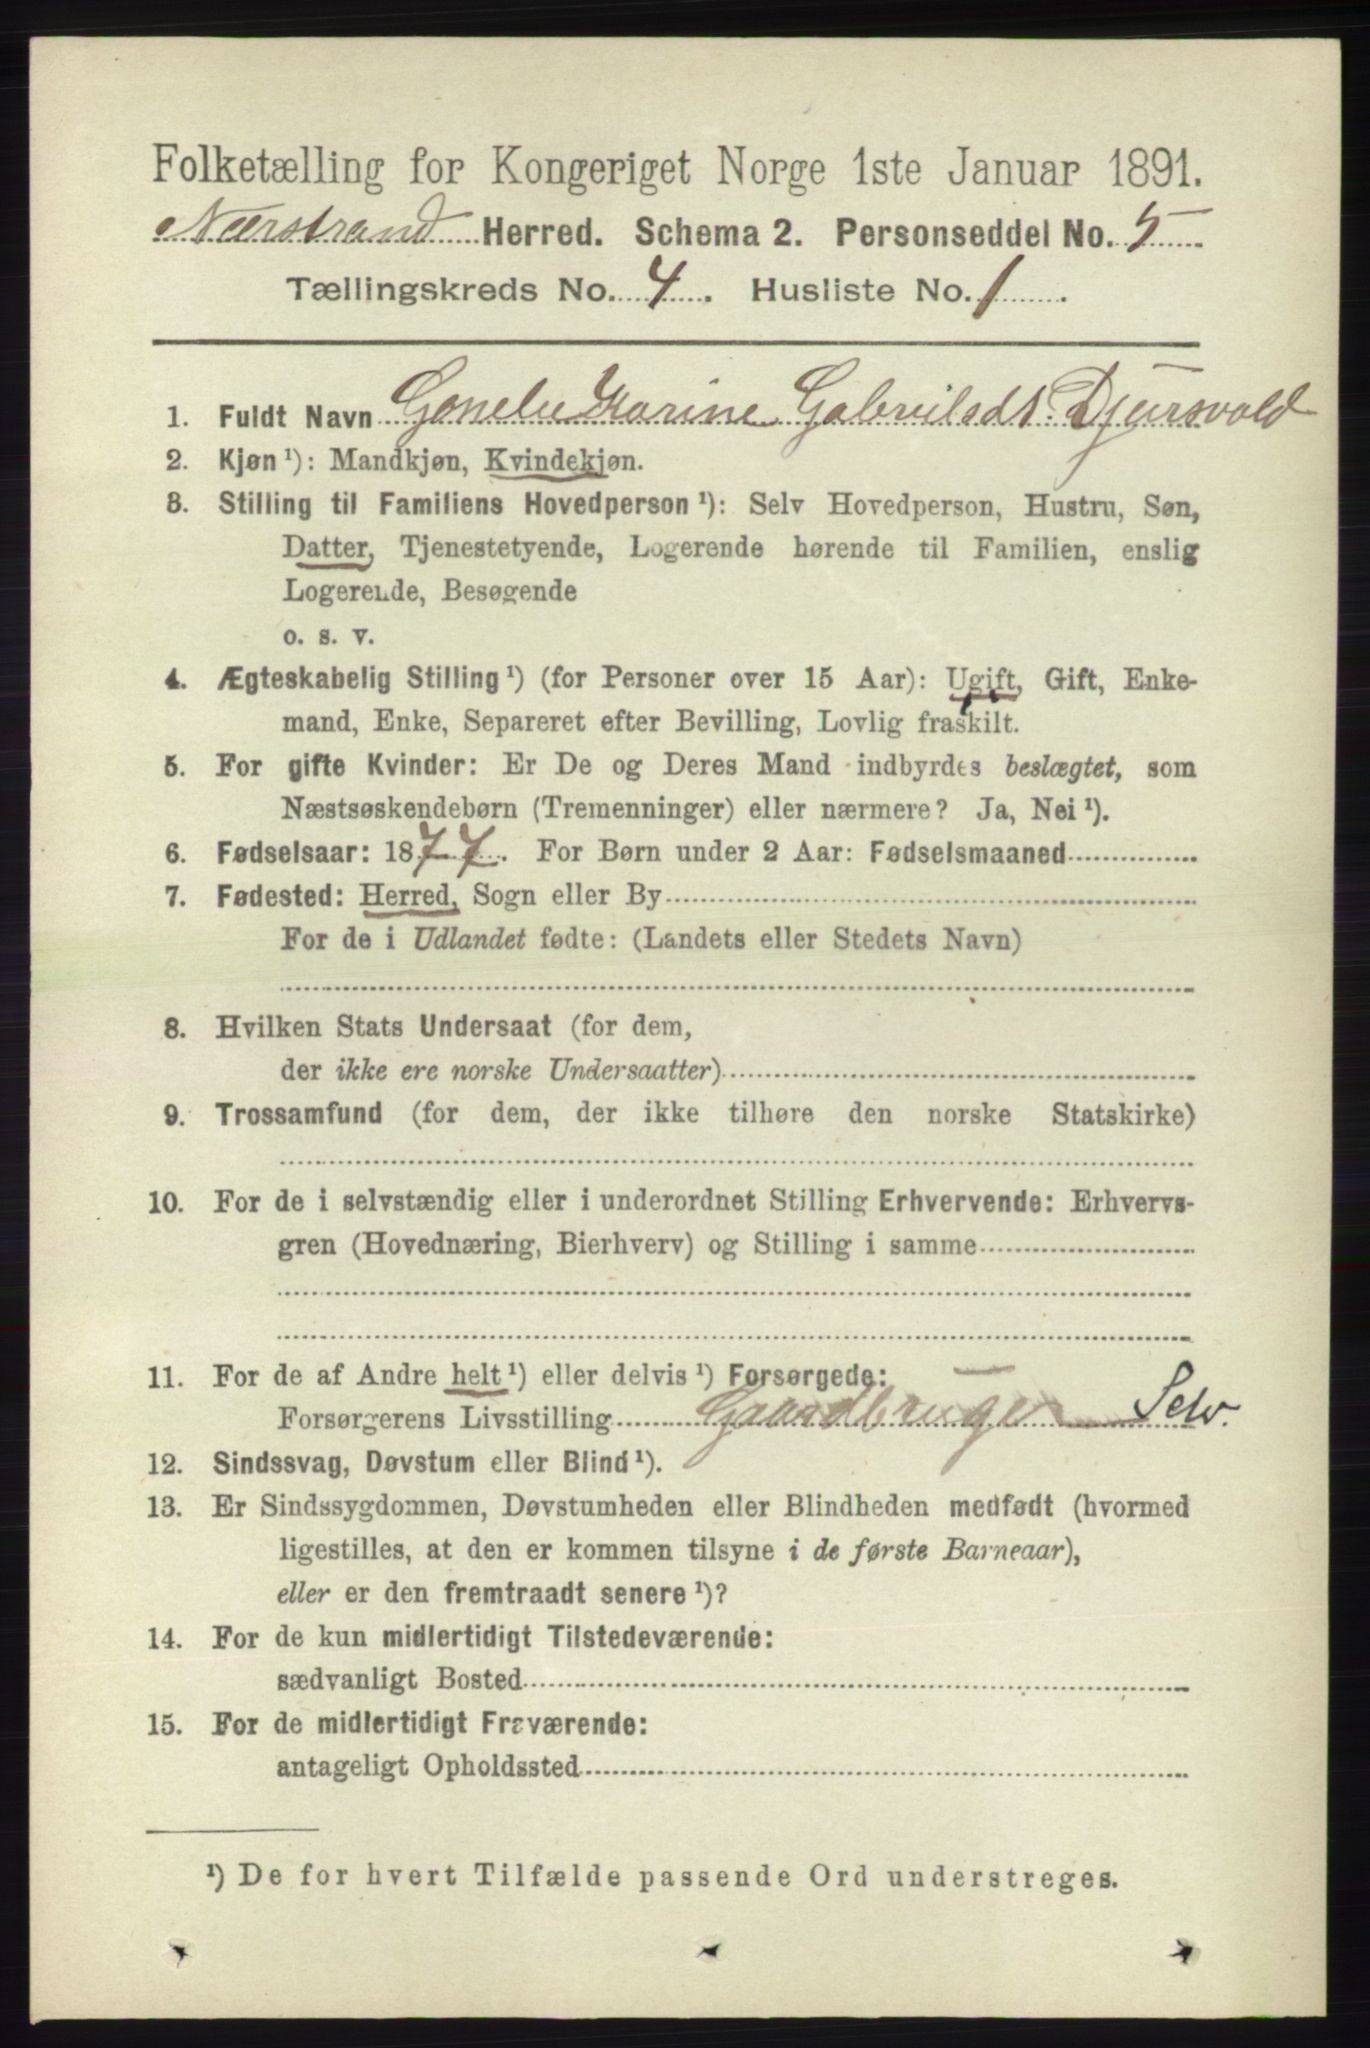 Folketælling for Kongeriget Norge 1ste Januar 1891.
Nærstrand Herred. Schema 2. Personseddel No. 5
Tællingskreds No. 4. Husliste No. 1.
1. Fuldt Navn Karine Gabrielsdt. Djursvold
2. Kjøn ¹): Mandkjøn, Kvindekjøn.
3. Stilling til Familiens Hovedperson ¹): Selv Hovedperson, Hustru, Søn,
Datter, Tjenestetyende, Logerende hørende til Familien, enslig
Logerende, Besøgende
o. s. v.
4. Ægteskabelig Stilling ¹) (for Personer over 15 Aar): Ugift, Gift, Enke-
mand, Enke, Separeret efter Bevilling, Lovlig fraskilt.
5. For gifte Kvinder: Er De og Deres Mand indbyrdes beslægtet, som
Næstsøskendebørn (Tremenninger) eller nærmere? Ja, Nei ¹).
6. Fødselsaar: 1877. For Børn under 2 Aar: Fødselsmaaned
7. Fødested: Herred, Sogn eller By
For de i Udlandet fødte: (Landets eller Stedets Navn)
8. Hvilken Stats Undersaat (for dem,
der ikke ere norske Undersaatter)
9. Trossamfund (for dem, der ikke tilhøre den norske Statskirke)
10. For de i selvstændig eller i underordnet Stilling Erhvervende: Erhvervs-
gren (Hovednæring, Bierhverv) og Stilling i samme
11. For de af Andre helt ¹) eller delvis ¹) Forsørgede:
Forsørgerens Livsstilling Gaardbruger Selv.
12. Sindssvag, Døvstum eller Blind ¹).
13. Er Sindssygdommen, Døvstumheden eller Blindheden medfødt (hvormed
ligestilles, at den er kommen tilsyne i de første Barneaar),
eller er den fremtraadt senere ¹)?
14. For de kun midlertidigt Tilstedeværende:
sædvanligt Bosted
15. For de midlertidigt Fraværende:
antageligt Opholdssted
¹) De for hvert Tilfælde passende Ord understreges.